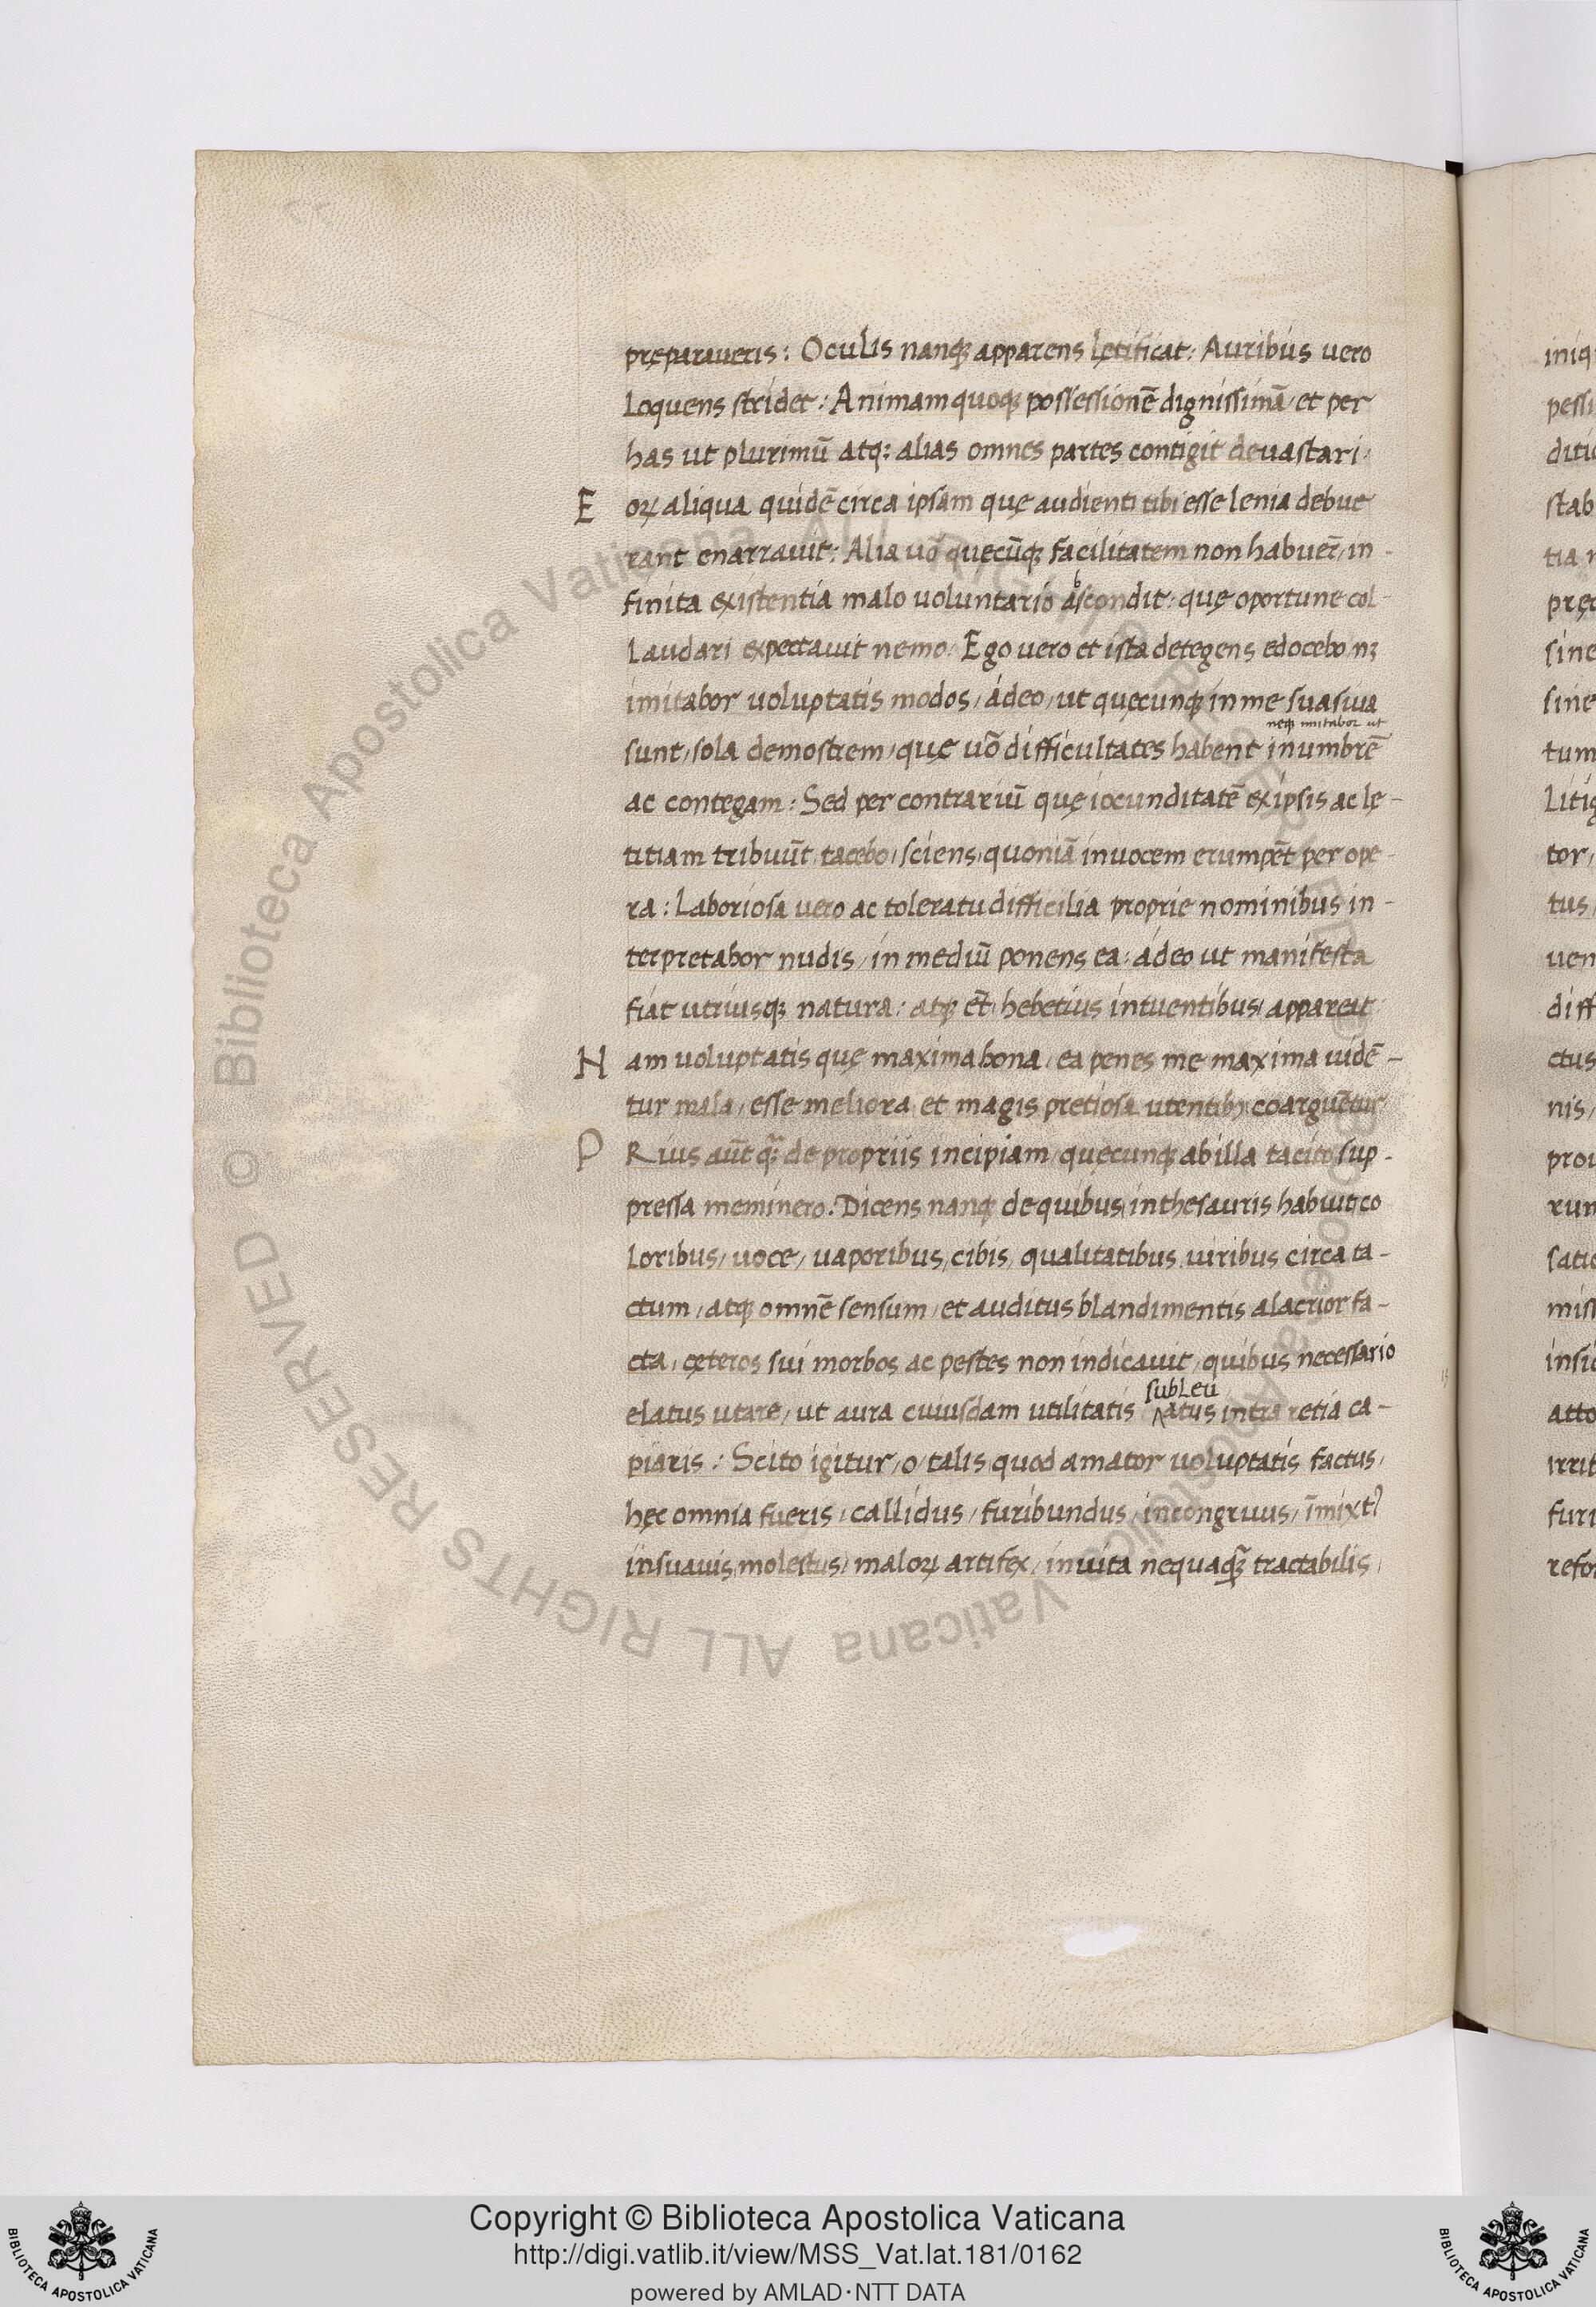 pręparaueris: Oculis nanqꝫ apparens lętificat: Auribus uero
Loquens stridet: Animam quoqꝫ possessionē dignissimā, et per
has ut plurimū atq: alias omnes partes contigit deuastari:
E oꝝ aliqua quidē circa ipsam quę audienti tibi esse lenia debue
rant enarrauit: Alia uō quęcūqꝫ facilitatem non habuer̄, in-
finita existentia malo uoluntario abscondit: quę oportune col-
Laudari expectauit nemo: Ego uero et ista detegens edocebo, nꝫ
imitabor uoluptatis modos, ádeo, ut quęcunqꝫ in me suasiua
neqꝫ imitabor ut
sunt, sola demostrem, quę uō difficultates habent inumbrē
ac contegam: Sed per contrariū quę iocunditatē ex ipsis ac lę-
titiam tribuūt, tacebo, sciens, quoniā in uocem erumpēt per ope-
ra: Laboriosa uero ac toleratu difficilia proprie nominibus in-
terpretabor nudis, in mediū ponens ea: ádeo ut manifesta
fiat utriusqꝫ natura: atqꝫ et̄ hebetius intuentibus appareat:
N am uoluptatis quę maxima bona, ea penes me maxima uidē-
tur mala, esse meliora et magis pretiosa utentibꝫ coarguētur
P Rius aūt q̄ꝫ de propriis incipiam, quęcunqꝫ ab illa tacito sup-
pressa meminero. Dicens nanqꝫ de quibus in thesauris habuit co
Loribus, uoce, uaporibus, cibis, qualitatibus uiribus circa ta-
ctum, atqꝫ omnē sensum, et auditus blandimentis alacrior fa-
cta, cęteros sui morbos ac pestes non indicauit, quibus necessario
subLeu
elatus utare, ut aura cuiusdam utilitatis ^atus intra retia ca-
piaris: Scito igitur, o, talis quod amator uoluptatis factus,
hęc omnia fueris, callidus, furibundus, incongruus, īmixtꝰ
insuauis, molestus, maloꝝ artifex, in uita nequaq̄ꝫ tractabilis,
iniq
pessi
diti
stab
tia
pręc
sine
sine
tum
Litig
tor,
tus
uen
diff
ctus
nis,
prou
run
satio
miss
insi
atto
irrit
furi
refo
© Biblioteca Apostolica Vaticana ALL RIGHTS RESERVED © Biblioteca Apostolica Vaticana ALL RIGHTS RESERVED
Copyright © Biblioteca Apostolica Vaticana
http://digi.vatlib.it/view/MSS_Vat.lat.181/0162
powered by AMLAD·NTT DATA
BIBLIOTECA APOSTOLICA VATICANA
BIBLIOTECA APOSTOLICA VATICANA